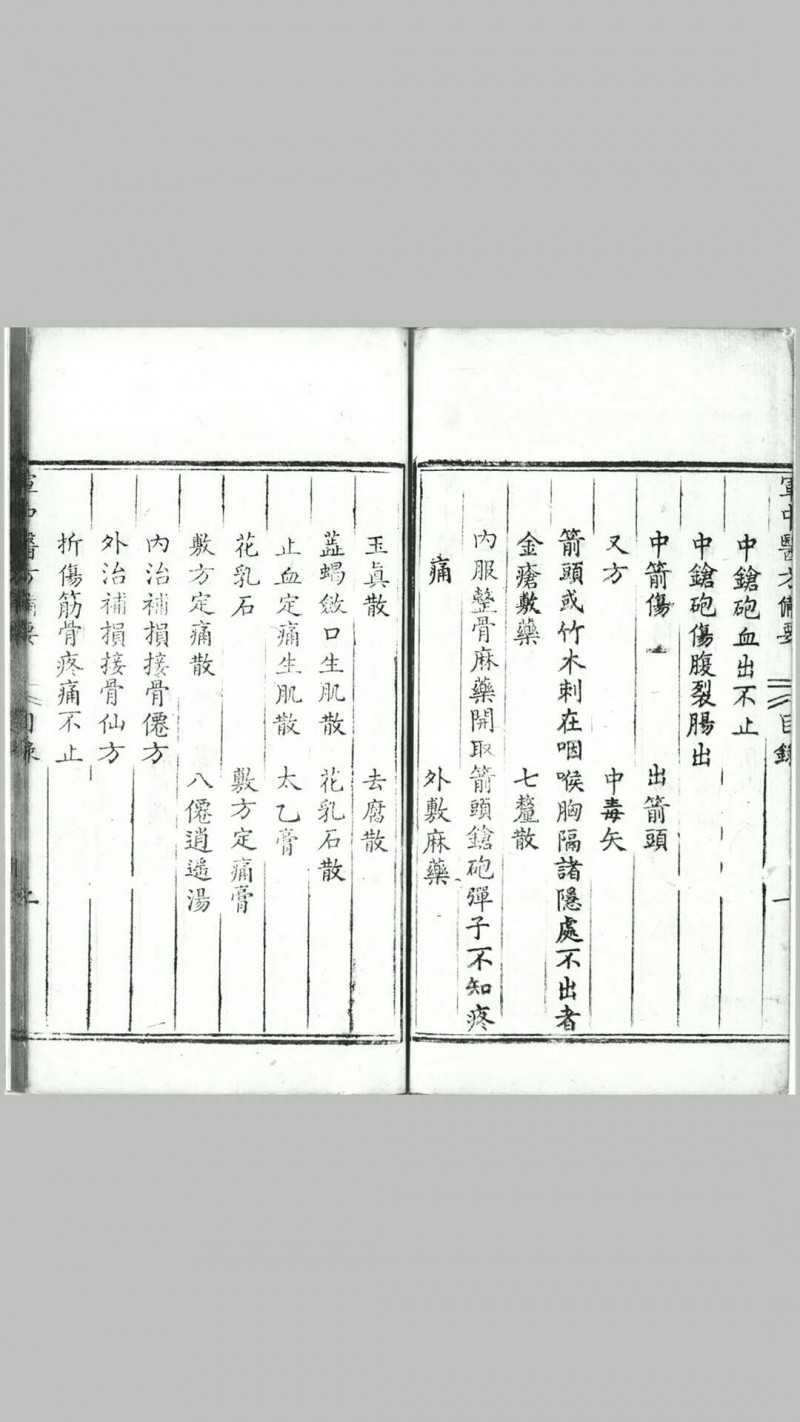 軍中醫方備要 目錄 一
中鎗砲血出不止
中鎗砲傷腹裂腸出
中箭傷 出箭頭
又方 中毒矢
箭頭或竹木刺在咽喉胸隔諸隱處不出者
金瘡敷藥 七釐散
內服整骨麻藥開取箭頭鎗砲彈子不知疼
痛 外敷麻藥
玉眞散 去腐散
蝎斂口生肌散 花乳石散
止血定痛生肌散 太乙膏
花乳石 敷方定痛膏
敷方定痛散 八僊逍遙湯
內治補損接骨僊方
外治補損接骨仙方
折傷筋骨疼痛不止
軍中醫方備要 目錄